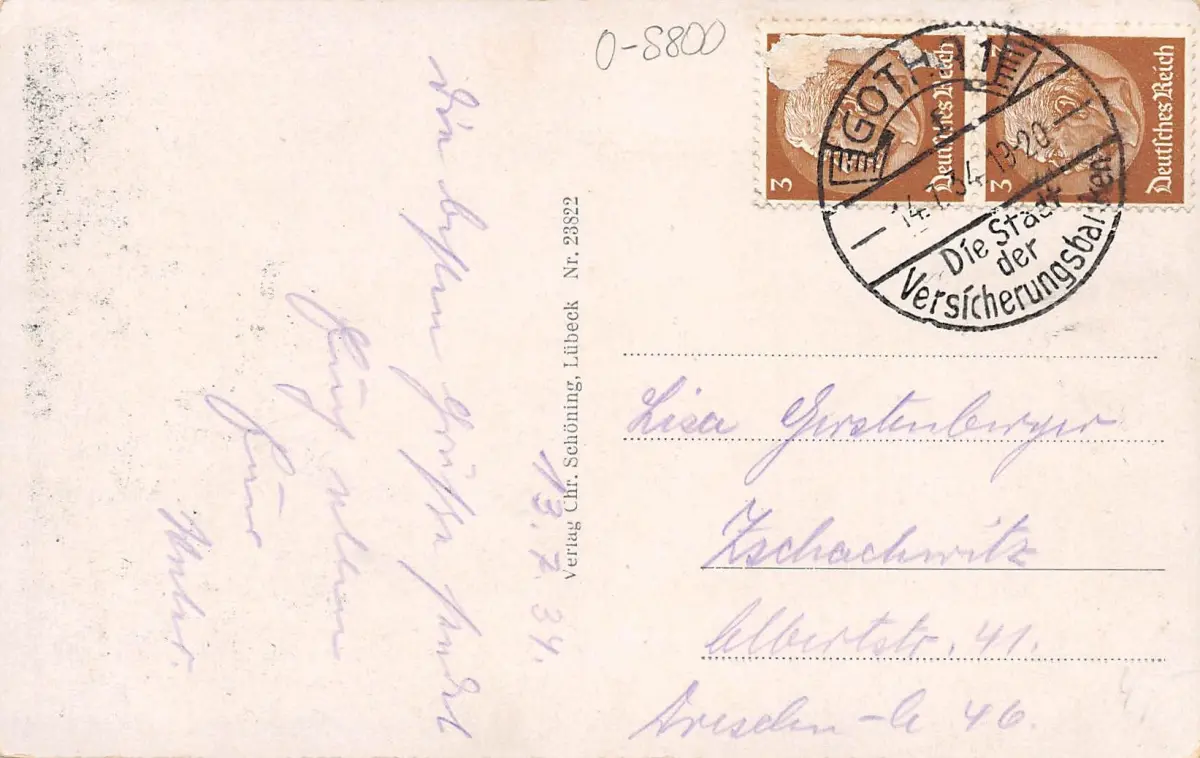 0-5800
3
Deutsches Reich
3
Deutsches Reich
GOTHA 1
14.7.34.19-20
Die Stadt
der
Versicherungsbanken
Die besten Grüße sendet
Euch allen
Eure
13.7.34.
Verlag Chr. Schöning, Lübeck Nr. 23822
Lisa Gerstenberger
Zschachwitz
Albertstr. 41.
Dresden-A 46.